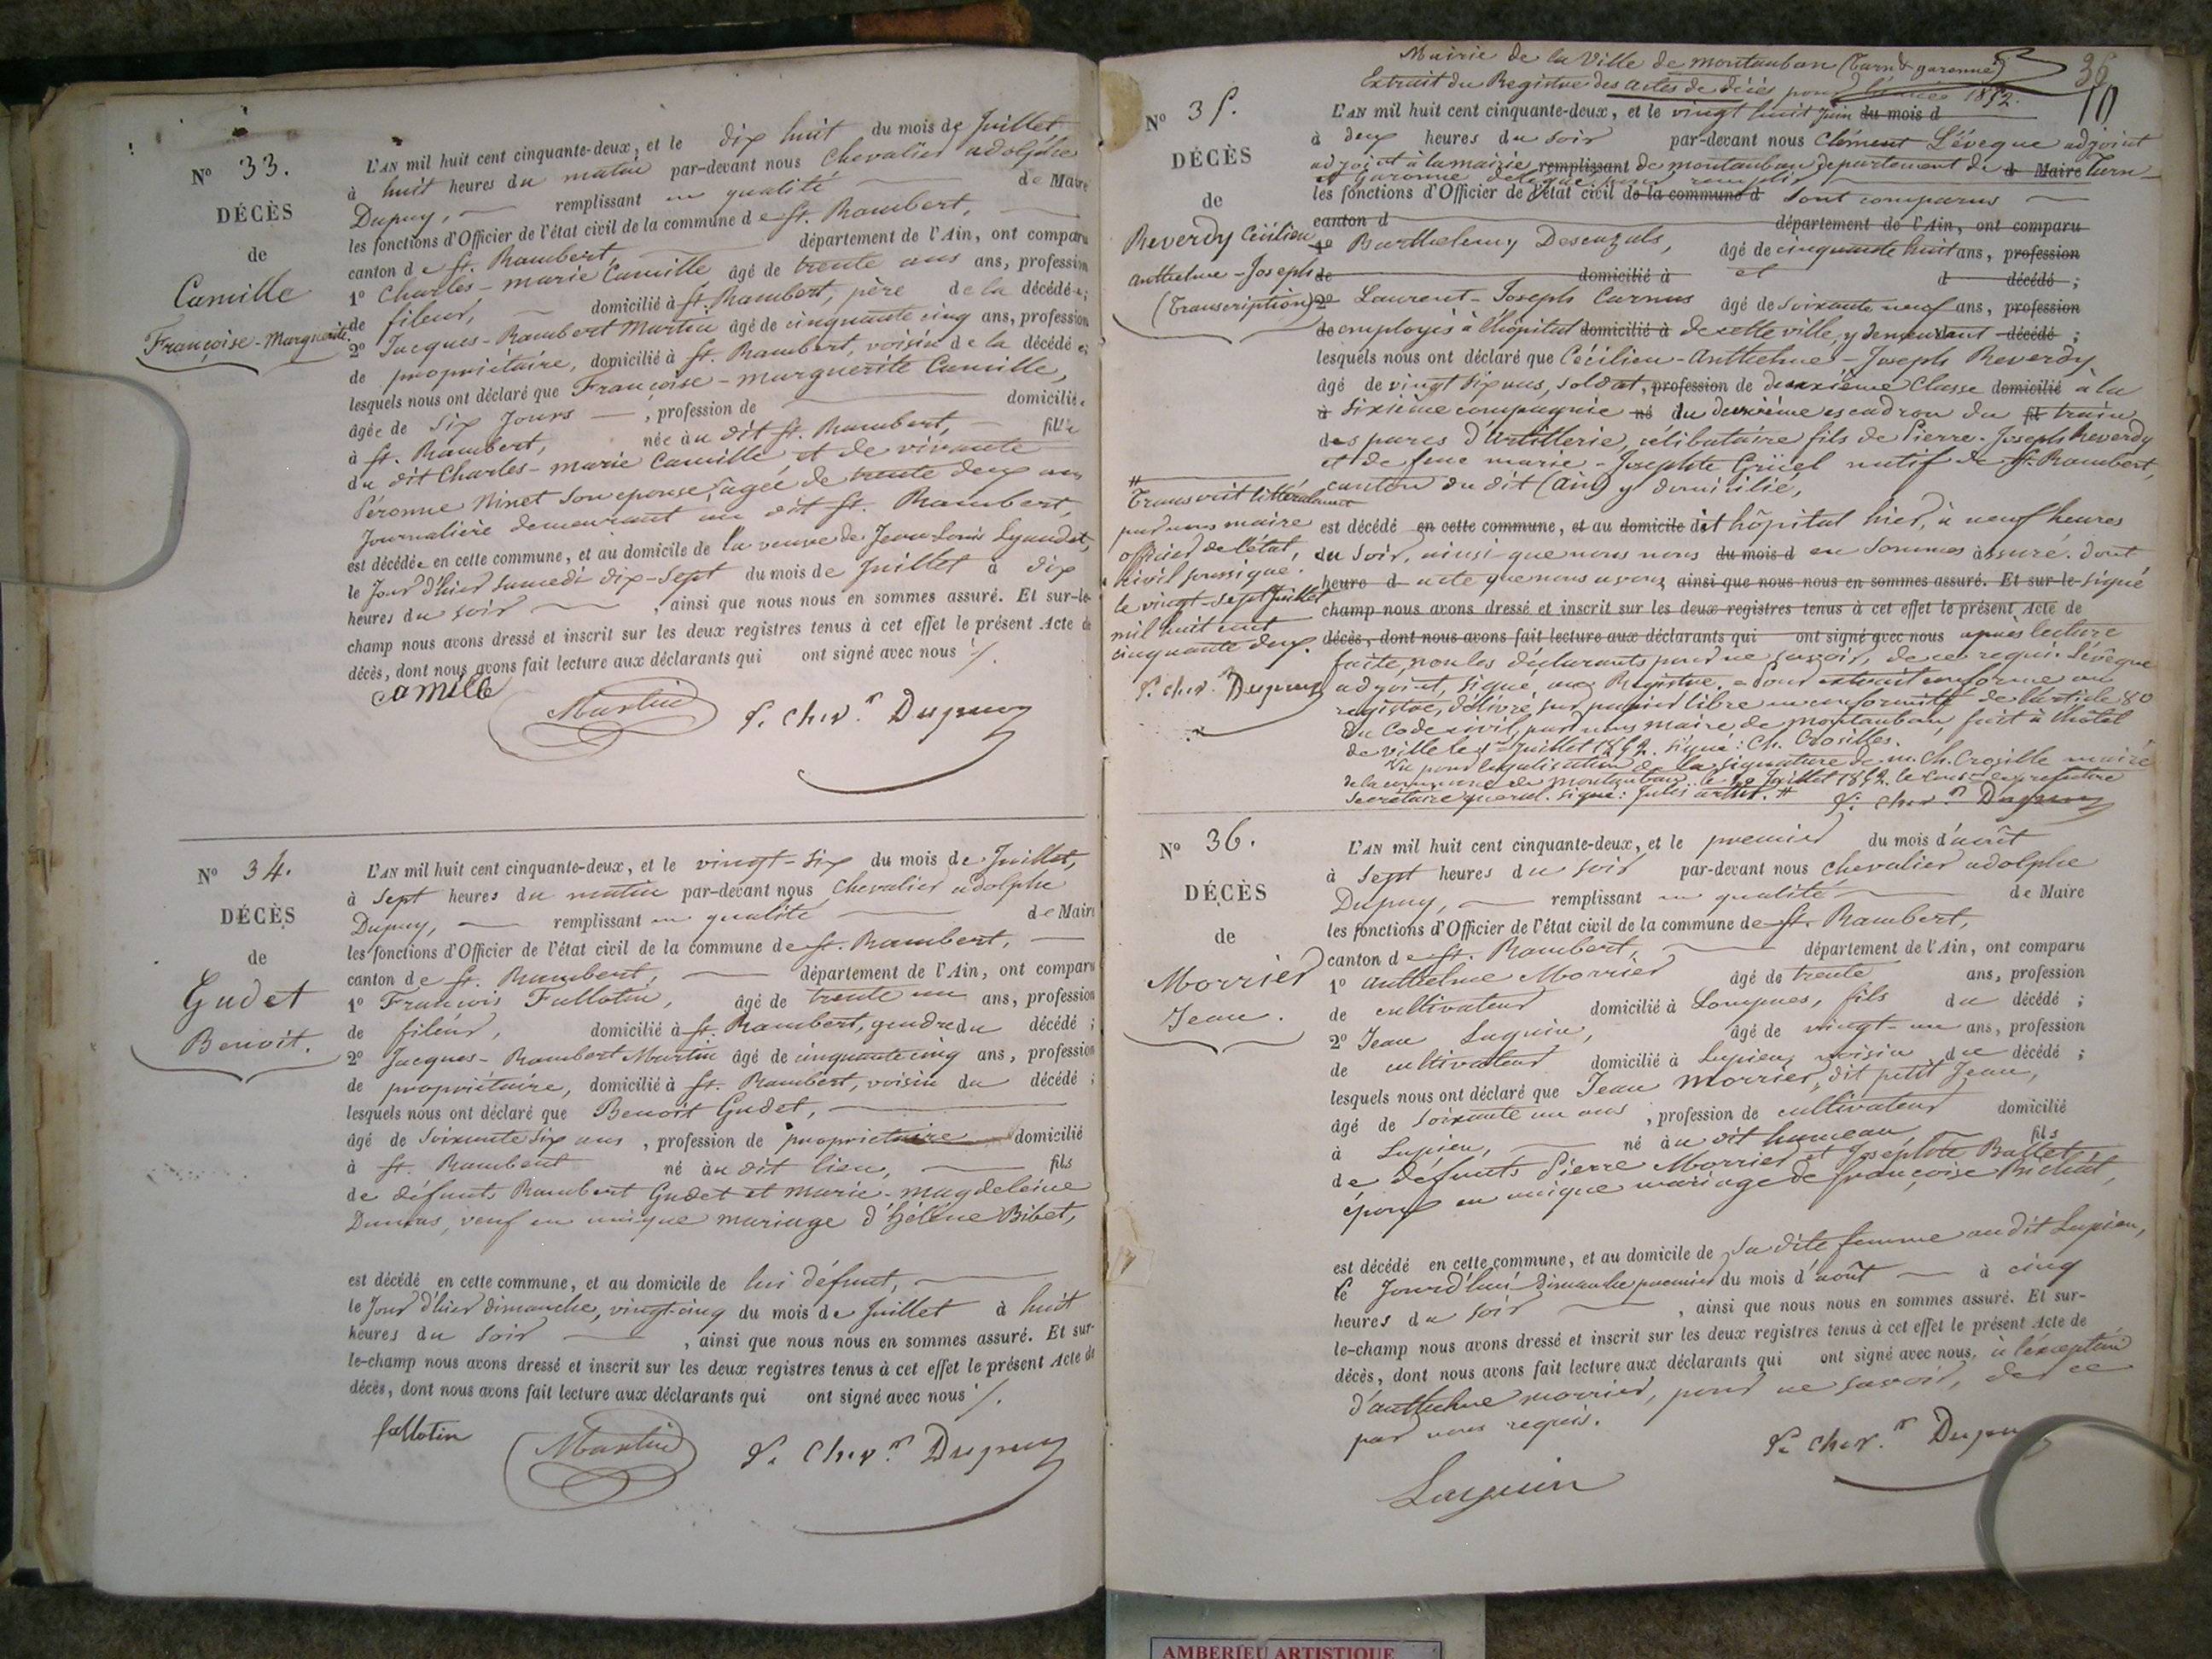 N° 33.
DÉCÈS
de
Camille
Françoise-Marguerite
L'AN mil huit cent cinquante-deux, et le dix huit du mois de Juillet
à huit heures du matin par-devant nous Chevalier adolphe
Dupuy, remplissant en qualité de Maire
les fonctions d'Officier de l'état civil de la commune de St. Rambert,
canton de St. Rambert, département de l'Ain, ont comparu
1° Charles-marie Camille âgé de trente ans ans, profession
de fileur, domicilié à St. Rambert, père de la décédée;
2° Jacques-Rambert Martin âgé de cinquante cinq ans, profession
de propriétaire, domicilié à St. Rambert, voisin de la décédée;
lesquels nous ont déclaré que Françoise-marguerite Camille,
âgée de Six Jours, profession de domiciliée
à St. Rambert, née au dit St. Rambert, fille
du dit Charles-marie Camille et de vivante
Péronne Ninet Son épouse, âgée de trente deux ans
Journalière demeurant au dit St. Rambert,
est décédée en cette commune, et au domicile de la veuve de Jean Louis
le Jour d'hier samedi dix-sept du mois de Juillet à dix
heures du soir, ainsi que nous nous en sommes assuré. Et sur-le-
champ nous avons dressé et inscrit sur les deux registres tenus à cet effet le présent Acte de
décès, dont nous avons fait lecture aux déclarants qui ont signé avec nous /.
Camille
Martin
Chevr. Dupuy
N° 34.
DÉCÈS
de
Gudet
Benoit.
L'AN mil huit cent cinquante-deux, et le vingt-six du mois de Juillet,
à Sept heures du matin par-devant nous Chevalier adolphe
Dupuy, remplissant en qualité de Maire
les fonctions d'Officier de l'état civil de la commune de St. Rambert,
canton de St. Rambert, département de l'Ain, ont comparu
1° François Fallotin, âgé de trente un ans, profession
de fileur, domicilié à St. Rambert, gendre du décédé;
2° Jacques-Rambert Martin âgé de cinquante cinq ans, profession
de propriétaire, domicilié à St. Rambert, voisin du décédé;
lesquels nous ont déclaré que Benoit Gudet,
âgé de Soixante Six ans, profession de propriétaire domicilié
à St. Rambert né au dit lieu, fils
de défunts Rambert Gudet et marie-magdeleine
Dumas, veuf en unique mariage d'Hélène Bibet,
est décédé en cette commune, et au domicile de lui défunt,
le Jour d'hier dimanche, vingt-cinq du mois de Juillet à huit
heures du soir, ainsi que nous nous en sommes assuré. Et sur-
le-champ nous avons dressé et inscrit sur les deux registres tenus à cet effet le présent Acte de
décès, dont nous avons fait lecture aux déclarants qui ont signé avec nous /.
fallotin
Martin
Chevr. Dupuy
Mairie de la Ville de montauban (Tarn & garonne)
Extrait du Registre des actes de décès pour l'année 1852.
36
N° 35.
DÉCÈS
de
Reverdy Cécilien
Anthelme-Joseph
(Transcription)
L'AN mil huit cent cinquante-deux, et le vingt huit Juin du mois d
à deux heures du soir par-devant nous Clément L'évêque adjoint
adjoint à la mairie remplissant de montauban département de d Maire Tarn-
et Garonne délégué pour remplir
les fonctions d'Officier de l'état civil de la commune d Sont comparus
canton d département de l'Ain, ont comparu
1° Barthelemy Descuzuls, âgé de cinquante huit ans, profession
de domicilié à et d décédé;
2° Laurent-Joseph Carnus âgé de soixante neuf ans, profession
de employés à l'hôpital domicilié à de cette ville, y demeurant décédé;
lesquels nous ont déclaré que Cécilien-Anthelme-Joseph Reverdy
âgé de vingt Six ans, soldat, profession de deuxième Classe domicilié à la
à Sixième compagnie né du deuxième escadron du fil train
des parcs d'Artillerie, célibataire fils de Pierre-Joseph Reverdy
et de feue marie-Josephte Grücel natif de St. Rambert,
canton du dit (ain) y domicilié,
est décédé en cette commune, et au domicile dit hôpital hier, à neuf heures
du Soir, ainsi que nous nous du mois d en Sommes assuré. dont
heure d acte que nous avons ainsi que nous nous en sommes assuré. Et sur-le- signé
champ nous avons dressé et inscrit sur les deux registres tenus à cet effet le présent Acte de
décès, dont nous avons fait lecture aux déclarants qui ont signé avec nous après lecture
faite, non les déclarants pour ne savoir, de ce requis. L'évêque
adjoint, signé, au Registre. Pour extrait conforme au
registre, délivré, sur papier libre en conformité de l'article 80
du Code civil, par nous maire de montauban, fait à l'hôtel
de ville le Juillet 1852. Signé: Ch. Crosilles.
Vu pour légalisation de la signature de m. Ch. Crosille maire
de la commune de Montauban. le Juillet 1852.
Secrétaire général. signé: Jules #
Chevr. Dupuy
#
Transcrit littéralement
par nous maire
officier de l'état,
civil soussigné.
le vingt-sept Juillet
mil huit cent
cinquante deux.
Chevr. Dupuy
N° 36.
DÉCÈS
de
Morrier
Jean.
L'AN mil huit cent cinquante-deux, et le premier du mois d'août
à Sept heures du soir par-devant nous Chevalier adolphe
Dupuy, remplissant en qualité de Maire
les fonctions d'Officier de l'état civil de la commune de St. Rambert,
canton de St. Rambert, département de l'Ain, ont comparu
1° Anthelme Morrier âgé de trente ans, profession
de cultivateur domicilié à Lompnes, fils du décédé;
2° Jean Luguin, âgé de vingt-un ans, profession
de cultivateur domicilié à Lupieu, voisin du décédé;
lesquels nous ont déclaré que Jean Morrier, dit petit Jean,
âgé de soixante un ans, profession de cultivateur domicilié
à Lupieu, né au dit hameau fils
de défunts Pierre Morrier et Josephte Ballet,
époux en unique mariage de françoise Bichat,
est décédé en cette commune, et au domicile de Sa dite femme au dit Lupieu,
le Jourd'hui dimanche premier du mois d'août à cinq
heures du soir, ainsi que nous nous en sommes assuré. Et sur-
le-champ nous avons dressé et inscrit sur les deux registres tenus à cet effet le présent Acte de
décès, dont nous avons fait lecture aux déclarants qui ont signé avec nous, à l'exception
d'anthelme morrier, pour ne savoir, de ce
par nous requis.
Chevr. Dupuy
Luguin
AMBERIEU ARTISTIQUE